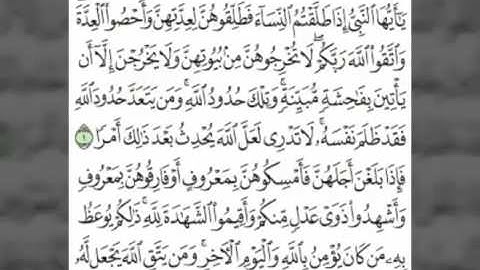 يَٰٓأَيُّهَا ٱلنَّبِيُّ إِذَا طَلَّقْتُمُ ٱلنِّسَآءَ فَطَلِّقُوهُنَّ لِعِدَّتِهِنَّ وَأَحْصُوا۟ ٱلْعِدَّةَ
وَٱتَّقُوا۟ ٱللَّهَ رَبَّكُمْ ۖ لَا تُخْرِجُوهُنَّ مِنۢ بُيُوتِهِنَّ وَلَا يَخْرُجْنَ إِلَّآ أَن
يَأْتِينَ بِفَٰحِشَةٍ مُّبَيِّنَةٍ ۚ وَتِلْكَ حُدُودُ ٱللَّهِ ۚ وَمَن يَتَعَدَّ حُدُودَ ٱللَّهِ
فَقَدْ ظَلَمَ نَفْسَهُۥ ۚ لَا تَدْرِى لَعَلَّ ٱللَّهَ يُحْدِثُ بَعْدَ ذَٰلِكَ أَمْرًا ١
فَإِذَا بَلَغْنَ أَجَلَهُنَّ فَأَمْسِكُوهُنَّ بِمَعْرُوفٍ أَوْ فَارِقُوهُنَّ بِمَعْرُوفٍ
وَأَشْهِدُوا۟ ذَوَىْ عَدْلٍ مِّنكُمْ وَأَقِيمُوا۟ ٱلشَّهَٰدَةَ لِلَّهِ ۚ ذَٰلِكُمْ يُوعَظُ
بِهِۦ مَن كَانَ يُؤْمِنُ بِٱللَّهِ وَٱلْيَوْمِ ٱلْءَاخِرِ ۚ وَمَن يَتَّقِ ٱللَّهَ يَجْعَل لَّهُۥ